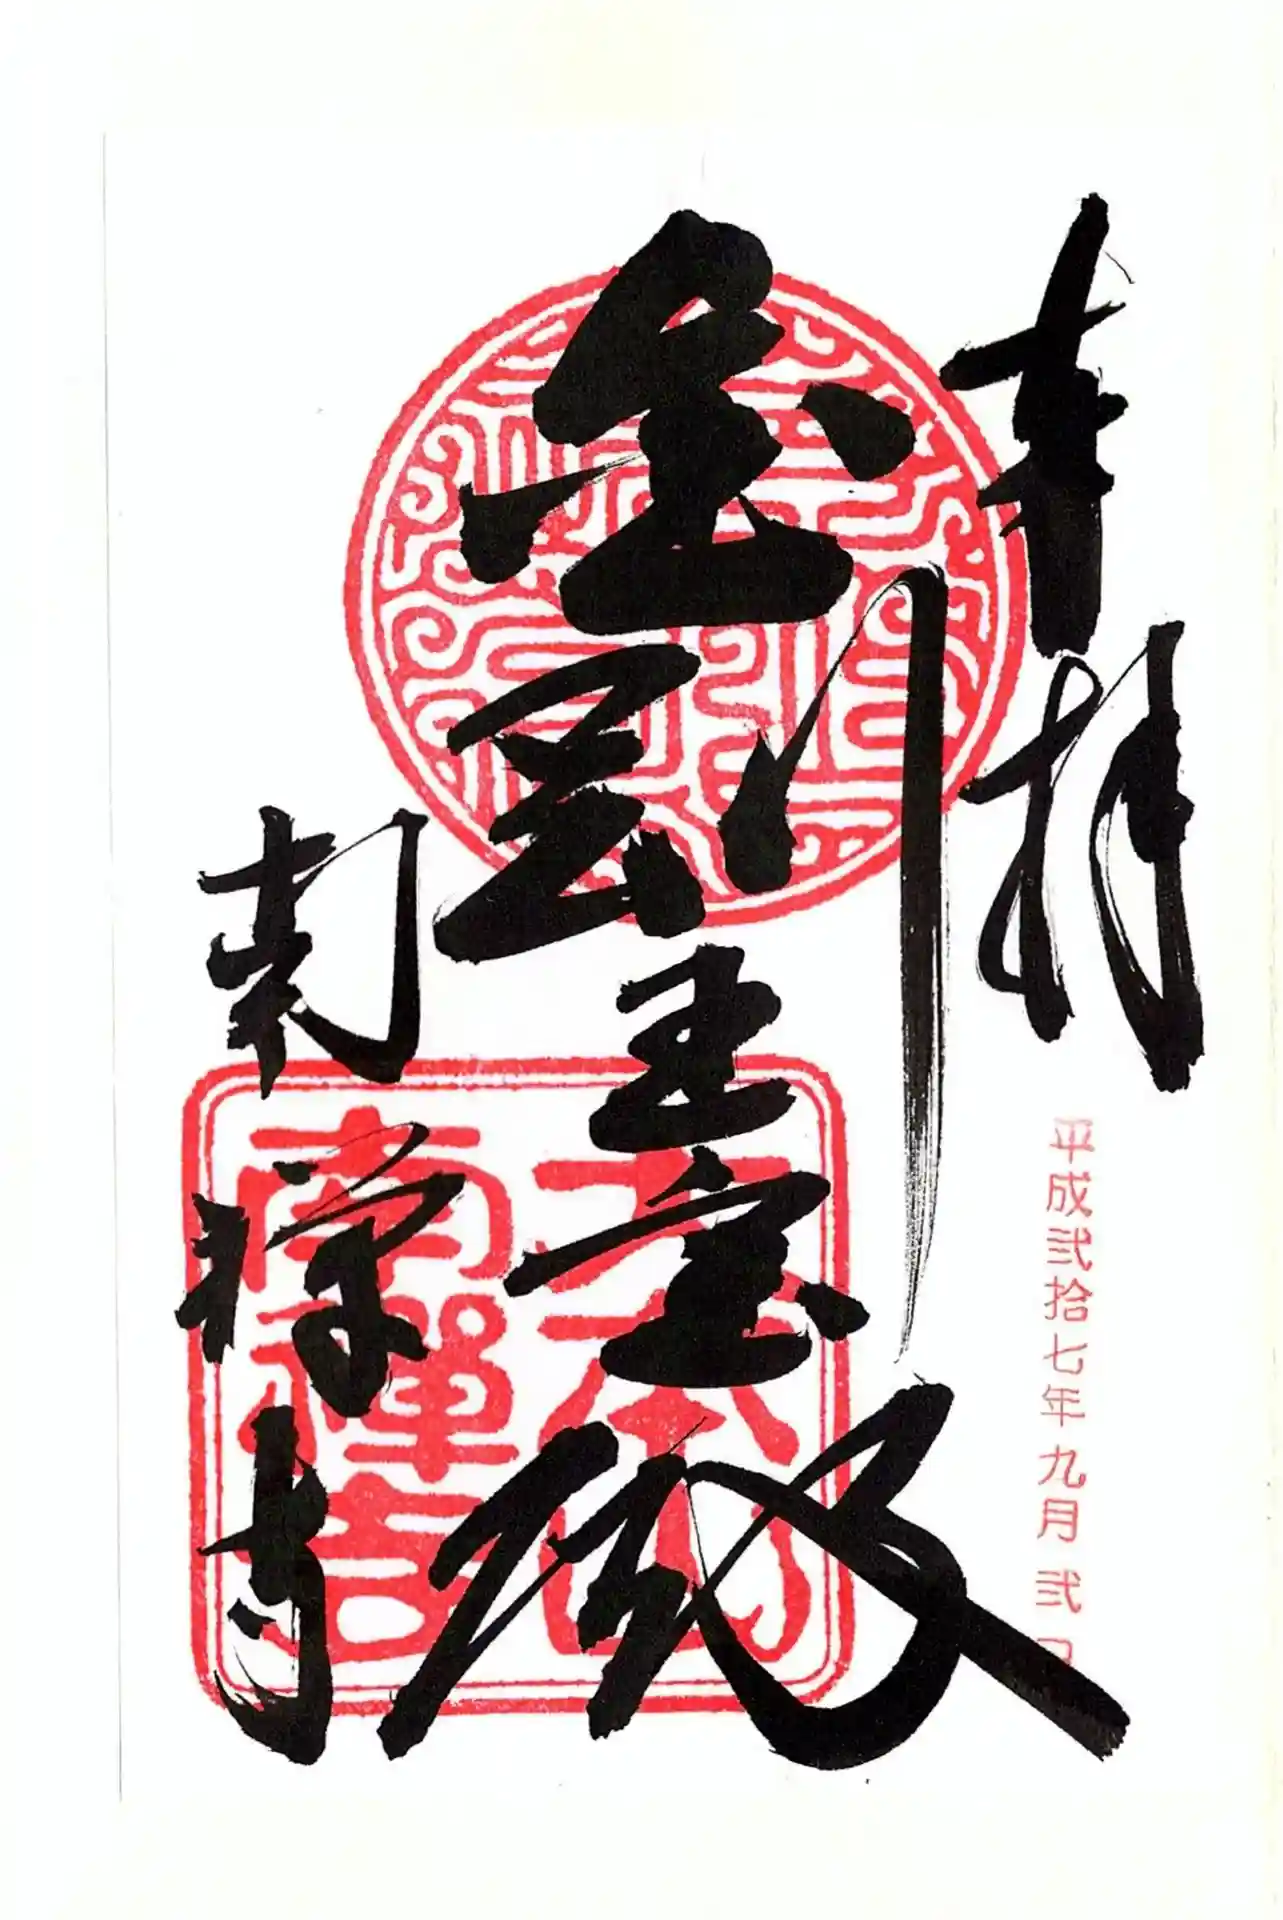 奉拝
平成弐拾七年九月弐日
金剛王宝殿
南禅寺
大本山
南禪寺